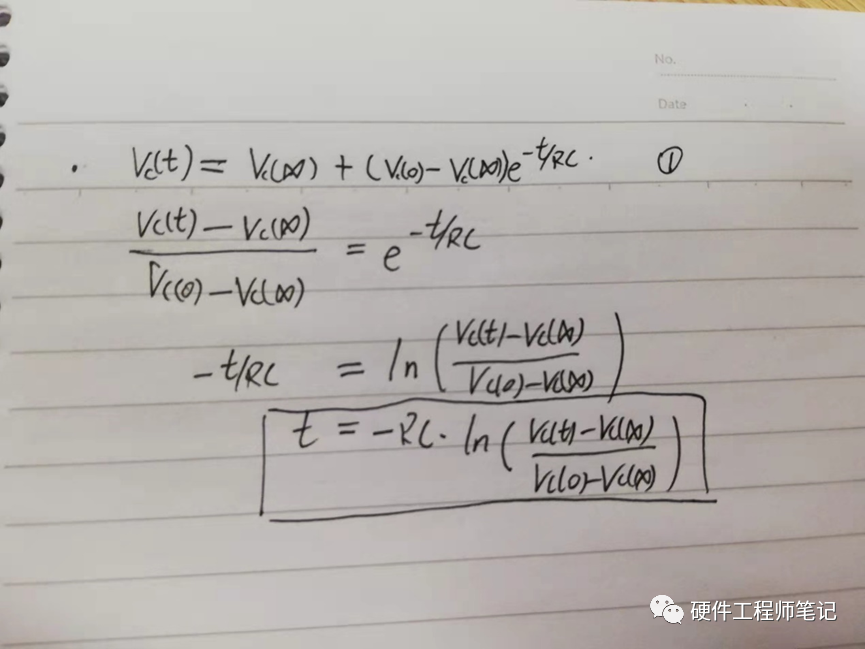 No.
Date
· Vc(t) = Vc(∞) + (Vc(0) - Vc(∞))e^{-t/RC}. ①
\frac{Vc(t) - Vc(∞)}{Vc(0) - Vc(∞)} = e^{-t/RC}
-t/RC = ln(\frac{Vc(t) - Vc(∞)}{Vc(0) - Vc(∞)})
t = -RC · ln(\frac{Vc(t) - Vc(∞)}{Vc(0) - Vc(∞)})
硬件工程师笔记